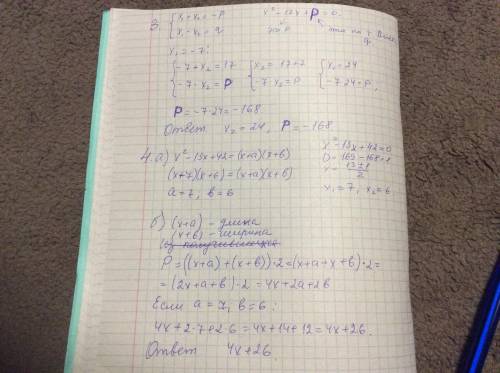 3. { x₁ + x₂ = -p
{ x₁ · x₂ = q
x² - 17x + P = 0.
это p
x₁ = -7:
{ -7 + x₂ = 17
{ -7 · x₂ = P
{ x₂ = 17 + 7
{ -7 · x₂ = P
{ x₂ = 24
{ -7·24 = P
P = -7·24 = -168
Ответ x₂ = 24, P = -168.
4. а) x² - 13x + 42 = (x+a)(x+в)
(x+7)(x+6) = (x+a)(x+в)
a = 7, в = 6
x² - 13x + 42 = 0
D = 169 - 168 = 1
x = 13 ± 1 / 2
x₁ = 7, x₂ = 6
б) (x+a) - длина
(x+в) - ширина
P = ((x+a) + (x+в))·2 = (x+a+x+в)·2 =
= (2x+a+в)·2 = 4x+2a+2в
Если a = 7, в = 6:
4x + 2·7 + 2·6 = 4x + 14 + 12 = 4x + 26.
Ответ 4x + 26.